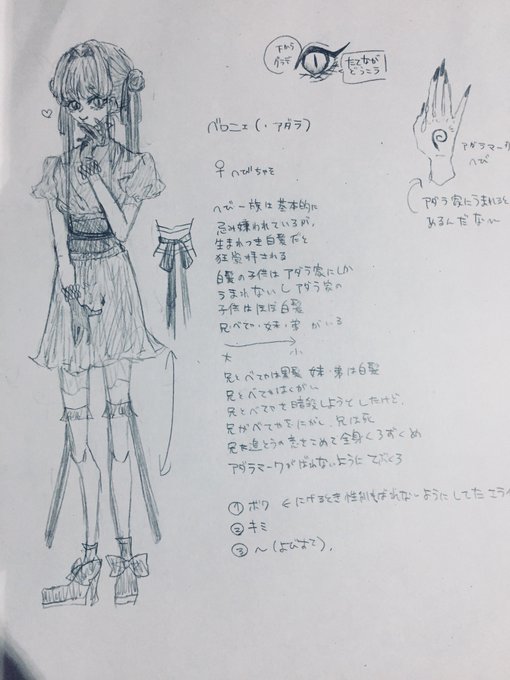 下から
グラデ
たてなが
どうこう
ベロニェ(・アダラ)
アダラマーク
へび
♀ へびちゃん
アダラ家にうまれると
あるんだな〜
へび一族は基本的に
忌み嫌われているが、
生まれつき白髪だと
狂信拝される
白髪の子供はアダラ家にしか
うまれないしアダラ家の
子供はほぼ白髪
兄・ベロ・妹・弟 がいる
大 → 小
兄とベロは黒髪 妹・弟は白髪
兄とベロはくがい
兄とベロを暗殺しようとしたけど、
兄がベロをにがし、兄は死
兄た追とうの意をこめて全身くろずくめ
アダラマークがばれないように てぶくろ
① ボク ← にげるとき性別もばれないようにしてた エライ
② キミ
③ 〜(よびすて)、